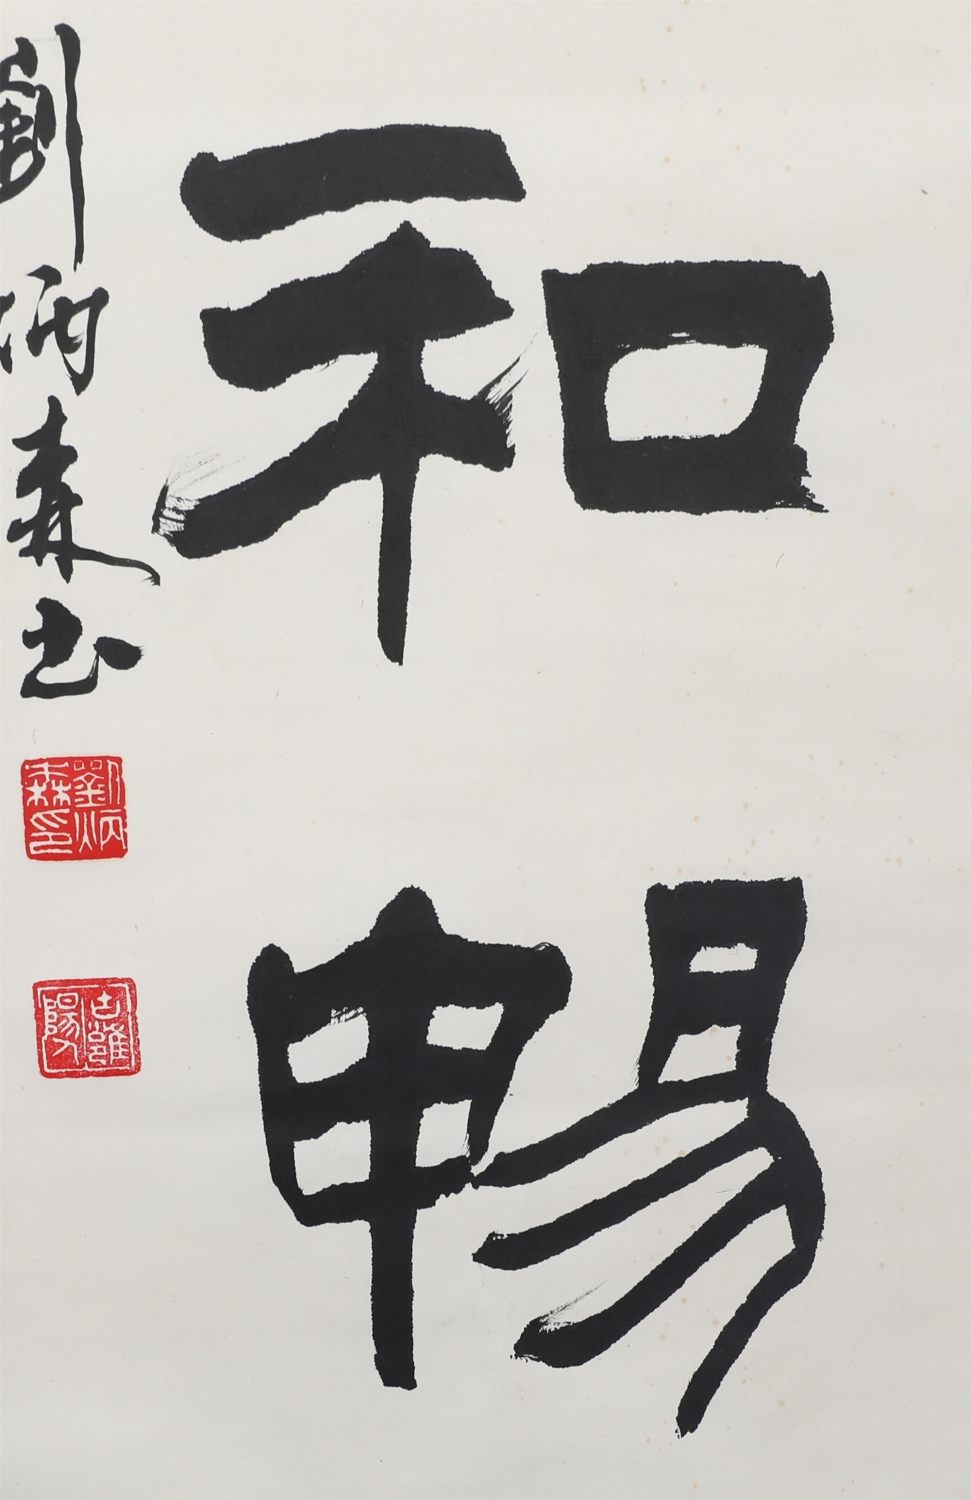 和暢
劉炳森書
劉炳森印
古雝陽人